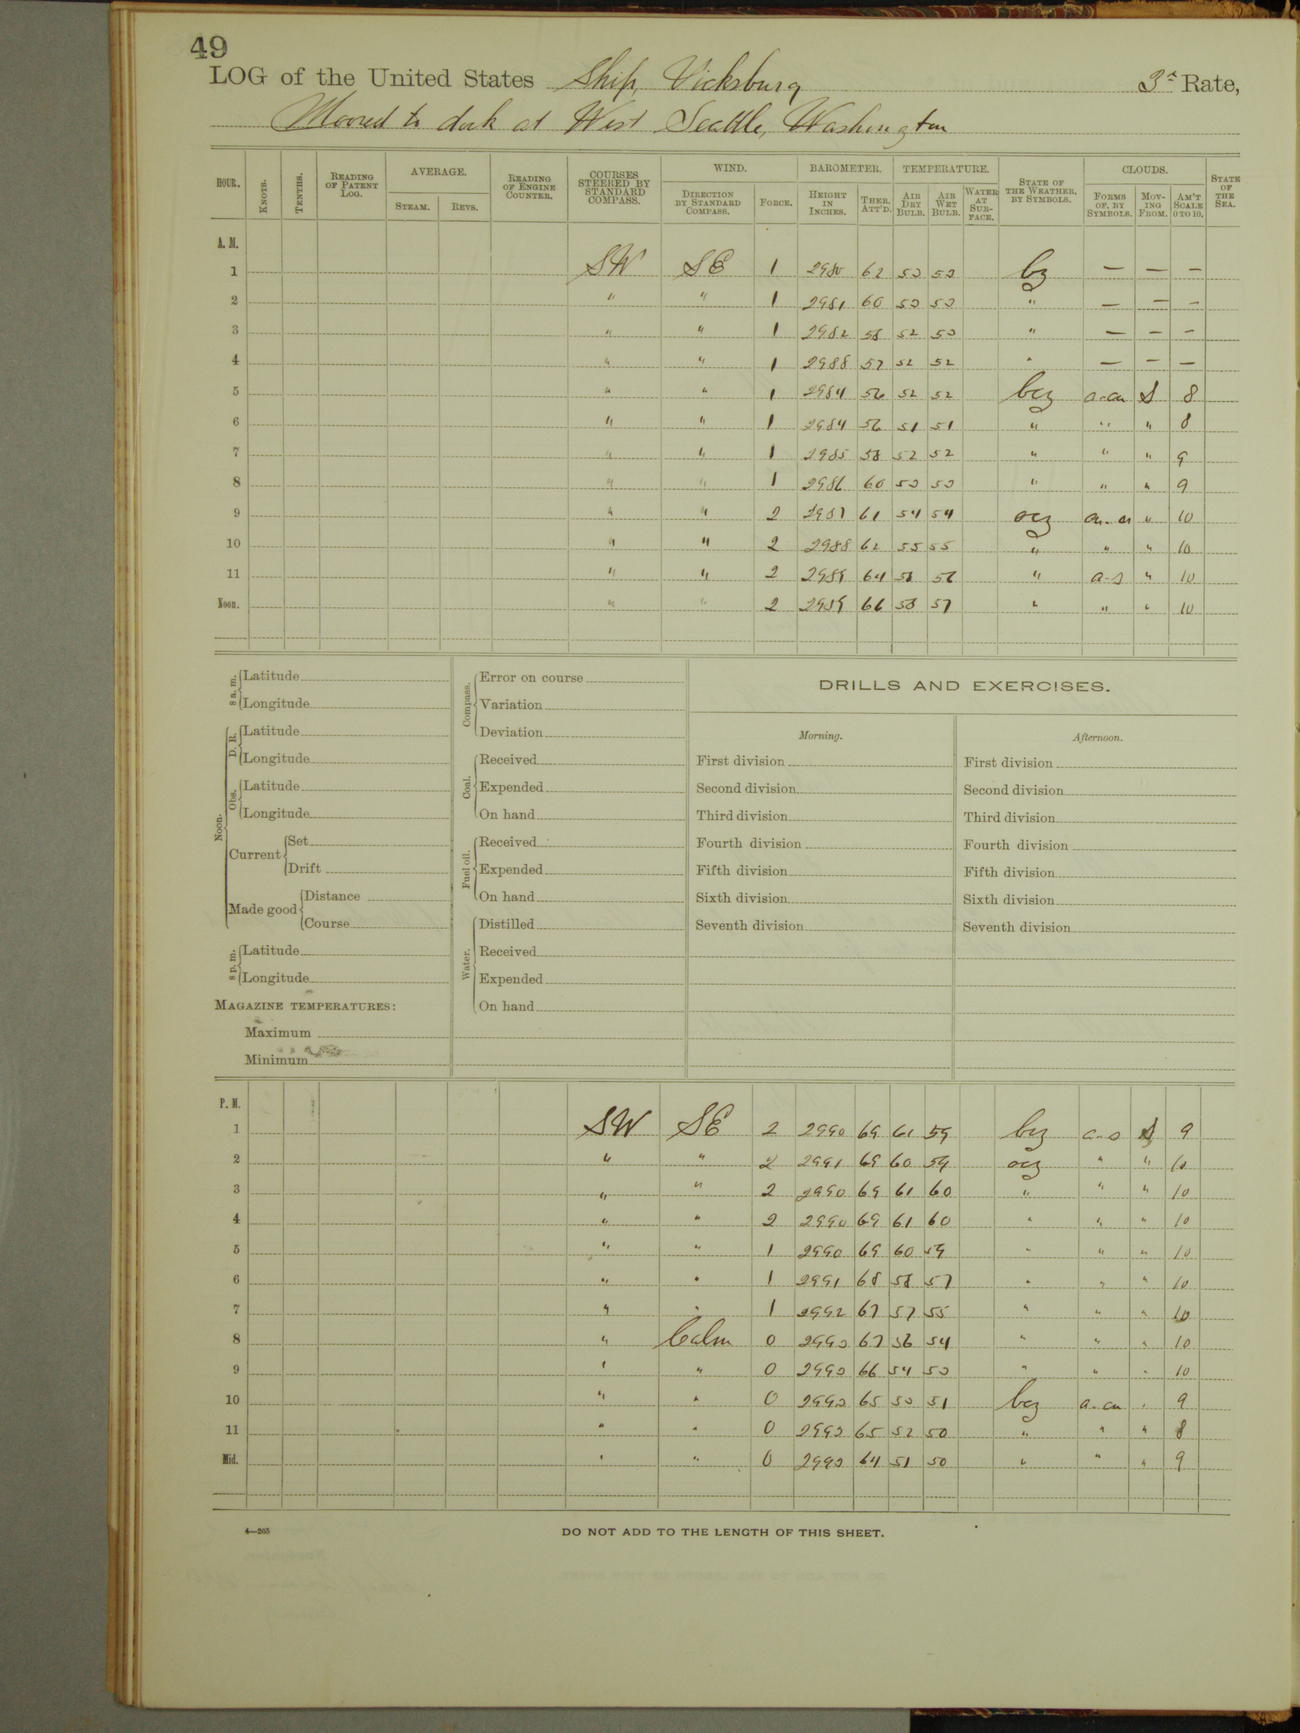 49
LOG of the United States Ship, Vicksburg 3d Rate,
Moored to dock at West Seattle, Washington
HOUR. KNOTS. TENTHS. READING OF PATENT LOG. AVERAGE. STEAM. REVS. READING OF ENGINE COUNTER. COURSES STEERED BY STANDARD COMPASS. WIND. DIRECTION BY STANDARD COMPASS. FORCE. BAROMETER. HEIGHT IN INCHES. THER. ATT'D. TEMPERATURE. AIR DRY BULB. AIR WET BULB. WATER AT SURFACE. STATE OF THE WEATHER, BY SYMBOLS. CLOUDS. FORMS OF, BY SYMBOLS. MOVING FROM. AM'T SCALE 0 TO 10. STATE OF THE SEA.
A. M.
1 SW SE 1 2980 62 53 53 bz — — —
2 " " 1 2981 60 53 53 " — — —
3 " " 1 2982 58 52 53 " — — —
4 " " 1 2988 57 52 52 " — — —
5 " " 1 2984 56 52 52 bcz a-cu S 8
6 " " 1 2984 56 51 51 " " " 8
7 " " 1 2985 58 52 52 " " " 9
8 " " 1 2986 60 53 53 " " " 9
9 " " 2 2987 61 54 54 ocz " 10
10 " " 2 2988 62 55 55 " " " 10
11 " " 2 2989 64 56 " a-s " 10
Noon. " " 2 2989 66 58 57 " " " 10
8 a. m. Latitude
Longitude
Noon. D. R. Latitude
Longitude
Obs. Latitude
Longitude
Current Set
Drift
Made good Distance
Course
8 p. m. Latitude
Longitude
MAGAZINE TEMPERATURES:
Maximum
Minimum
Compass. Error on course
Variation
Deviation
Coal. Received
Expended
On hand
Fuel oil. Received
Expended
On hand
Water. Distilled
Received
Expended
On hand
DRILLS AND EXERCISES.
Morning.
First division
Second division
Third division
Fourth division
Fifth division
Sixth division
Seventh division
Afternoon.
First division
Second division
Third division
Fourth division
Fifth division
Sixth division
Seventh division
P. M.
1 SW SE 2 2990 69 61 59 bcz a-s S 9
2 " " 2 2991 69 60 59 ocz " " 10
3 " " 2 2990 69 61 60 " " " 10
4 " " 2 2990 69 61 60 " " " 10
5 " " 1 2990 69 60 59 " " " 10
6 " " 1 2991 68 58 57 " " " 10
7 " " 1 2992 67 57 55 " " " 10
8 " Calm 0 2993 67 56 54 " " " 10
9 " " 0 2993 66 54 53 " " " 10
10 " " 0 2993 65 53 51 bcz a-cu " 9
11 " " 0 2993 65 52 50 " " " 8
Mid. " " 0 2993 64 51 50 " " " 9
4—265
DO NOT ADD TO THE LENGTH OF THIS SHEET.